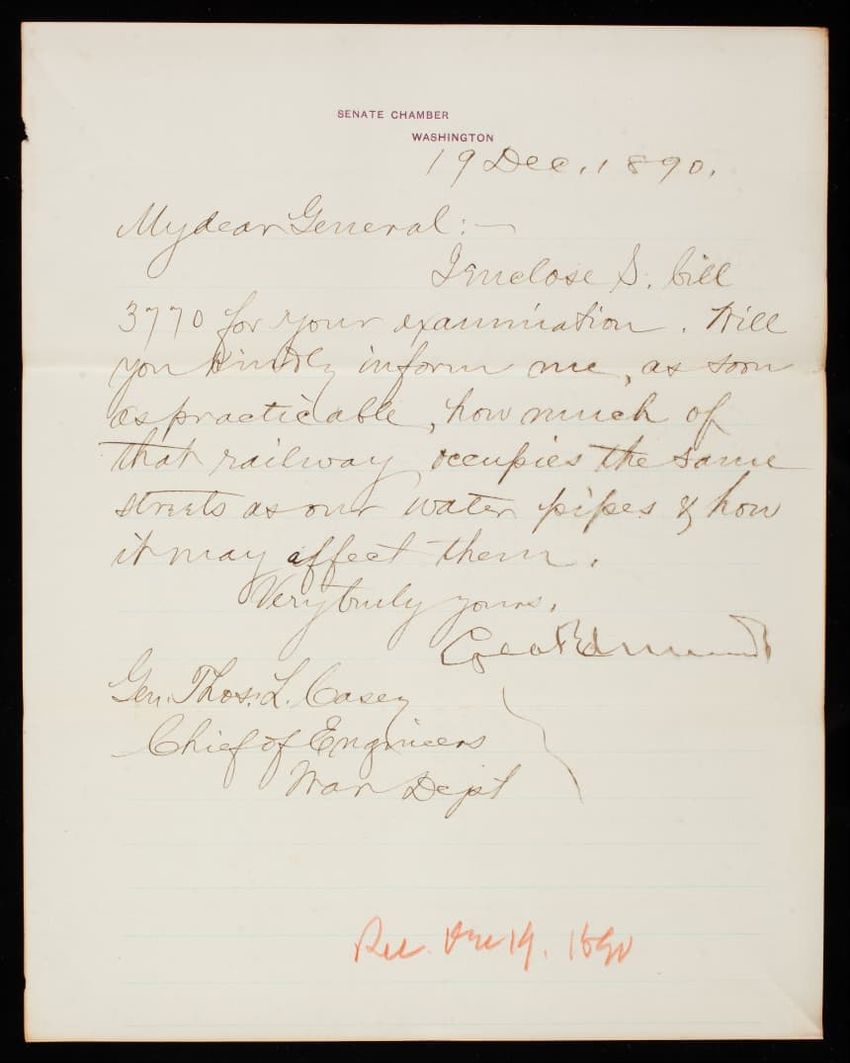 SENATE CHAMBER
WASHINGTON
19 Dec. 1890.
My dear General:—
I enclose S. bill
3770 for your examination. Will
you kindly inform me, as soon
as practicable, how much of
that railway occupies the same
streets as our water pipes & how
it may affect them.
Very truly yours,
Geo F Edmunds
Gen. Thos. L. Casey
Chief of Engineers
War Dept
Rec. Dec 19. 1890